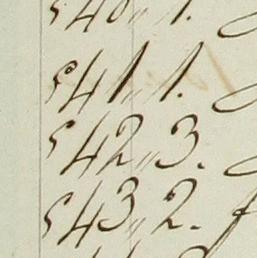 540 " 1.
541 " 1.
542 " 3.
543 " 2.